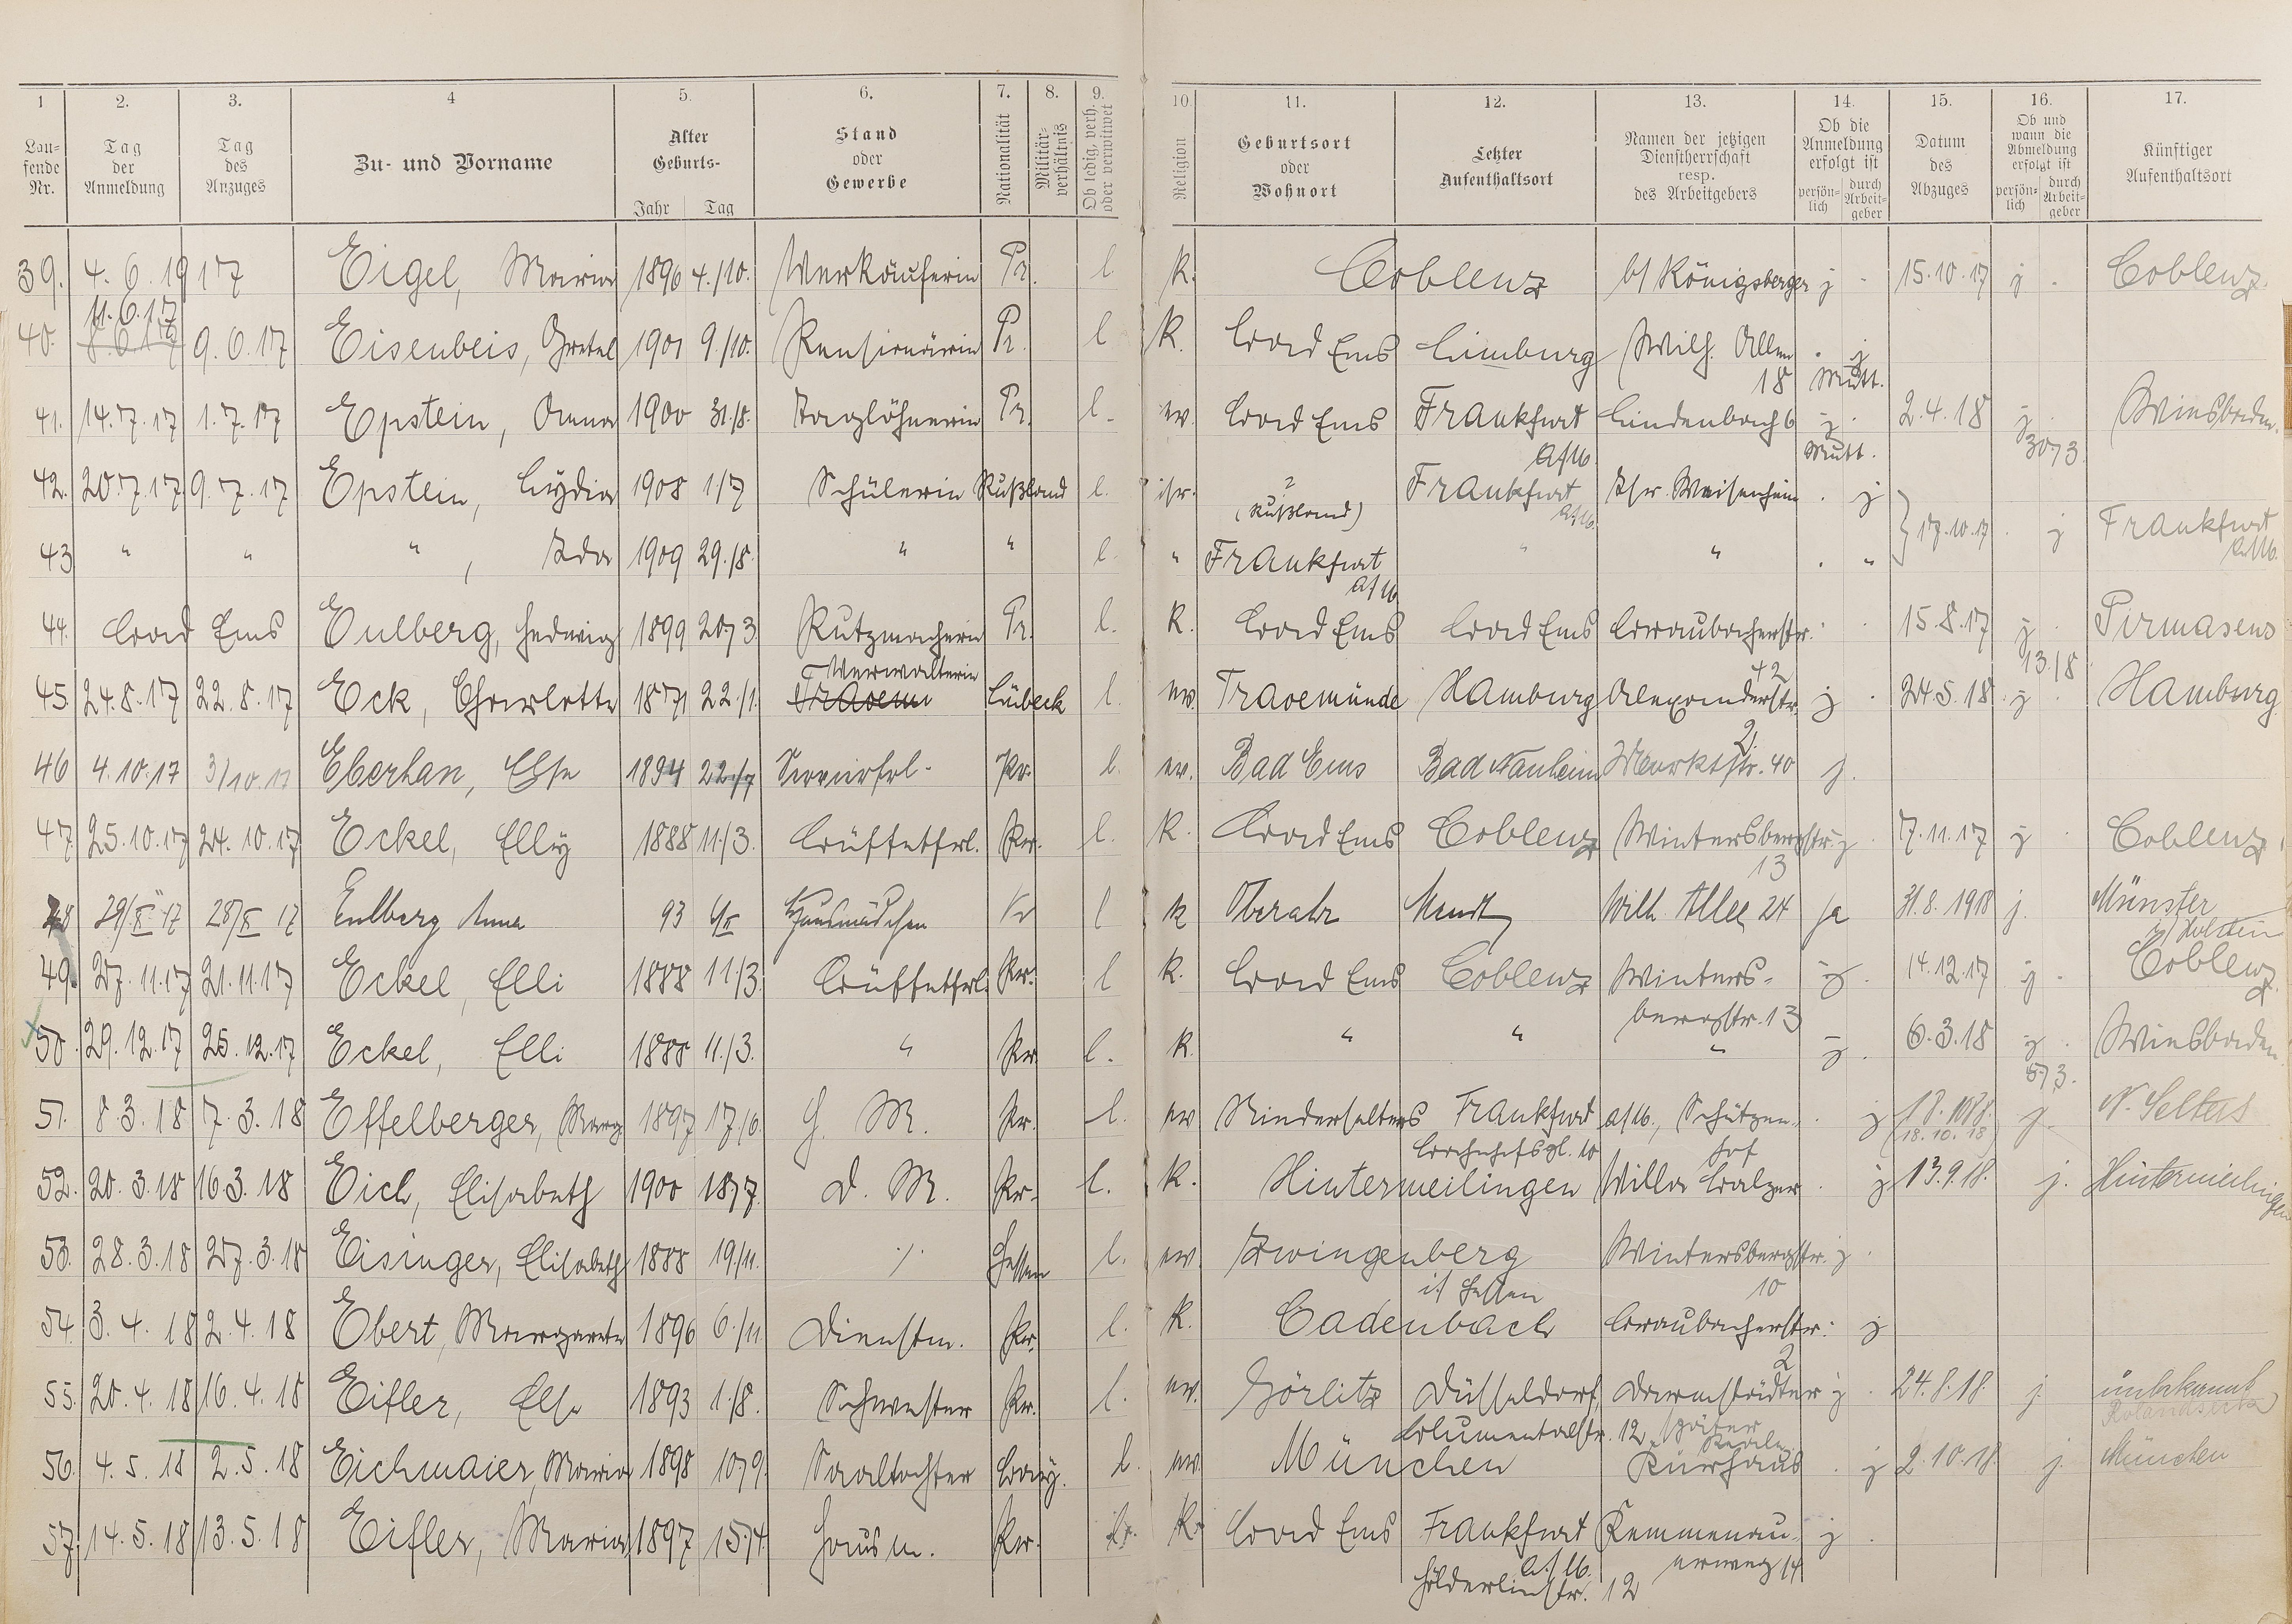 1 2. 3. 4 5. 6. 7. 8. 9. 10. 11. 12. 13. 14. 15. 16. 17.
Lau-
fende
Nr.
Tag
der
Anmeldung
Tag
des
Anzuges
Zu- und Vorname
Alter
Geburts-
Jahr Tag
Stand
oder
Gewerbe
Nationalität
Militär-
verhältnis
Ob ledig, verh.
oder verwitwet
Religion
Geburtsort
oder
Wohnort
Letzter
Aufenthaltsort
Namen der jetzigen
Dienstherrschaft
resp.
des Arbeitgebers
Ob die
Anmeldung
erfolgt ist
persön-
lich
durch
Arbeit-
geber
Datum
des
Abzuges
Ob und
wann die
Abmeldung
erfolgt ist
persön-
lich
durch
Arbeit-
geber
Künftiger
Aufenthaltsort
39. 4. 6. 1917 Eigel, Maria 1896 4./10. Verkäuferin Pr. l. K. Coblenz b/ Königsberger j 15.10.17 j Coblenz.
11.6.17
40. 9.6.17 Eisenbeis, Gretel 1901 9./10. Pensionärin Pr. l K. Bad Ems Limburg Wilh. Allee . j
18 Mutt.
41. 14.7.17 1.7.17 Epstein, Anna 1900 31./8. Taglöhnerin Pr. l. ev. Bad Ems Frankfurt Lindenbach 6 j. 2.4.18 j Wiesbaden.
a/M. Mutt. 30/3.
42. 20.7.17 9.7.17 Epstein, Lydia 1908 1/7 Schülerin Rußland l. isr. ? Frankfurt Isr. Waisenheim . j
(Rußland) a/M. 17.10.17 . j Frankfurt
a/M.
43 " " " , Ida 1909 29./8. " " l. " Frankfurt " " . "
a/M
44. Bad Ems Eulberg, Hedwig 1899 20/3 Putzmacherin Pr. l. K. Bad Ems Bad Ems Braubacherstr. 15.8.17 j Pirmasens
Verwalterin 42 13./8.
45. 24.8.17 22.8.17 Eck, Charlotte 1871 22./1. Lübeck l. ev. Travemünde Hamburg Alexanderstr. j 24.5.18 j Hamburg
2.
46 4.10.17 3/10.17 Eberhan, Else 1894 22./7 Servierfrl. Pr. l. ev. Bad Ems Bad Nauheim Marktstr. 40 j.
47. 25.10.17 24.10.17 Eckel, Elly 1888 11./3. Büffetfrl. Pr. l. K. Bad Ems Coblenz Wintersbergstr. j 7.11.17 j Coblenz.
13
48 29/X 17 28/X 17 Eulberg Anna 93 Hausmädchen Pr l k Oberahr Wilh. Allee 24 ja 31.8.1918 j. Münster
49. 27.11.17 21.11.17 Eckel, Elli 1888 11./3. Büffetfrl. Pr. l K. Bad Ems Coblenz Winters- j. 14.12.17 j Coblenz
bergstr. 13
50. 29.12.17 25.12.17 Eckel, Elli 1888 11./3. " Pr. l. K. " " " j. 6.3.18 j Wiesbaden
5/3.
51. 8.3.18 7.3.18 Effelberger, Marg. 1897 17/6. H. M. Pr. l. ev Niederselters Frankfurt a/M., Schützen- j j. N. Selters
Bahnhofspl. 10 hof (18.10.18)
52. 20.3.18 16.3.18 Eich, Elisabeth 1900 18/7. D. M. Pr. l. K. Hintermeilingen Villa Balzer . j 13.9.18. j. Hintermeilingen
53. 28.3.18 27.3.18 Eisinger, Elisabeth 1888 19/11. ./. Hessen l. ev. Zwingenberg Wintersbergstr. j.
i/ Hessen 10
54. 3.4.18 2.4.18 Ebert, Margarete 1896 6./11 Dienstm. Pr. l. K. Cadenbach Braubacherstr. j
2
55. 20.4.18 16.4.18 Eifler, Else 1893 1./8. Schwester Pr. l. ev. Görlitz Düsseldorf, Darmstädter j 24.8.18. j. unbekannt
Blumentalstr. 12 später Rolandseck
56. 4.5.18 2.5.18 Eichmaier, Maria 1898 10/9. Saaltochter Bay. l. ev. München Kurhaus . j 2.10.18. j. München
57. 14.5.18 13.5.18 Eifler, Maria 1897 15/4. Hausm. Pr. K. Bad Ems Frankfurt Kemmenau- j
a/M. erweg 14
Hölderlinstr. 12